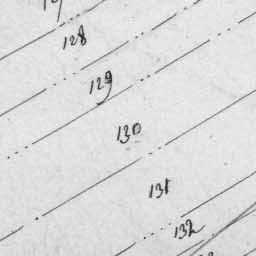 128
129
130
131
132